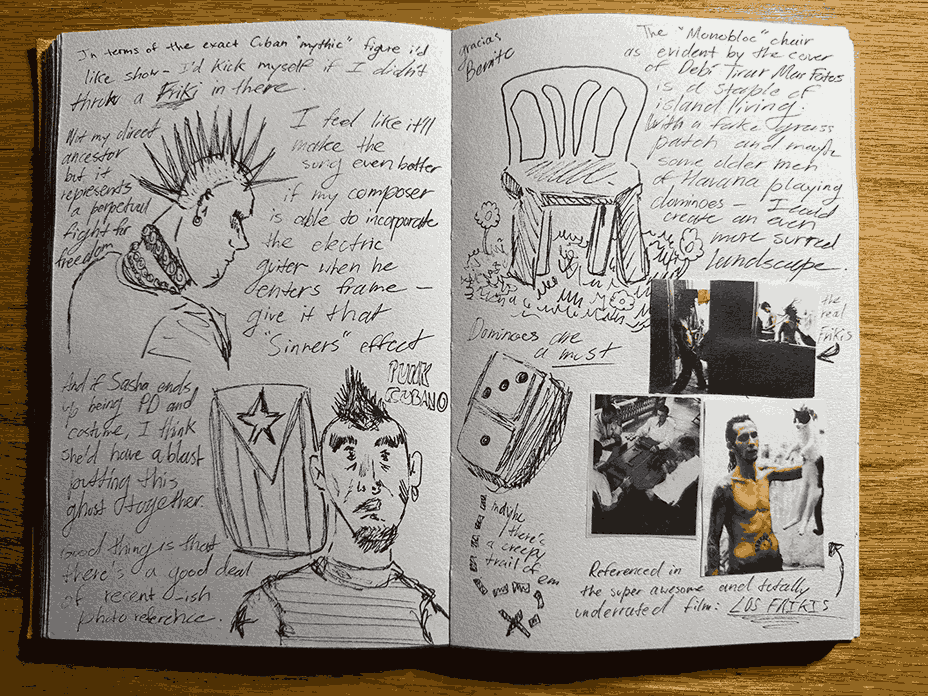 In terms of the exact Cuban "mythic" figure i'd
like show - I'd kick myself if I didn't
throw a Friki in there.
Not my direct
ancestor
but it
represents
a perpetual
fight for
freedom
I feel like it'll
make the
song even better
if my composer
is able to incorporate
the electric
guiter when he
enters frame -
give it that
"Sinners" effect
And if Sasha ends
up being PD and
costume, I think
she'd have a blast
putting this
ghost together.
Good thing is that
there's a good deal
of recent-ish
photo reference.
PUNK
CUBANO
gracias
Benito
The "Monobloc" chair
as evident by the cover
of Debi Tirar Mas Fotos
is a staple of
island living.
With a fake grass
patch and maybe
some older men
of Havana playing
dominoes - I could
create an even
more surreal
landscape.
Dominoes are
a must
the
real
FRIKIS
maybe
there's
a creepy
trail of em
Referenced in
the super awesome and totally
underrated film: LOS FRIKIS